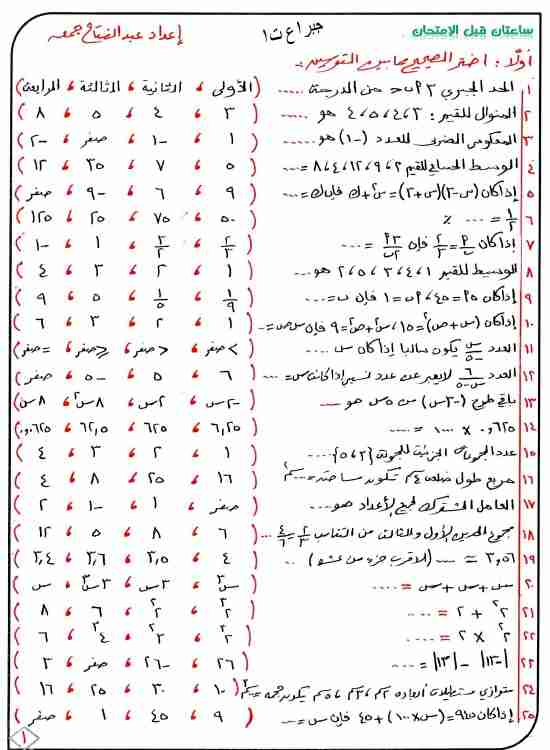 ساعتان قبل الامتحان
جبر ١ع ت١
إعداد عبد الفتاح جمعه
أولاً : اختر الصحيح مما بين القوسين :-
١ الحد الجبري ٣ من الدرجة ..... (الأولى ، الثانية ، الثالثة ، الرابعة)
٢ المنوال للقيم : ٣ ، ٤ ، ٥ ، ٤ هو ..... (٣ ، ٤ ، ٥ ، ٨)
٣ المعكوس الضربي للعدد (-١) هو .... (١ ، -١ ، صفر ، -٢)
٤ الوسط الحسابي للقيم ٢ ، ٩ ، ١٢ ، ٤ ، ٨ = .... (٥ ، ٧ ، ٣٥ ، ١٢)
٥ إذا كان (س-٣)(س+٣) = س٢ + ك فإن ك = .... (٩ ، ٦ ، -٩ ، صفر)
٦ ١/٢ = .... ٪ (٥٠ ، ٧٥ ، ٢٥ ، ١٢٥)
٧ إذا كان = ٢/٣ فإن = .... (٢/٣ ، ٣/٢ ، ١ ، -١)
٨ الوسيط للقيم ١ ، ٤ ، ٣ ، ٥ ، ٢ هو .... (١ ، ٢ ، ٣ ، ٤)
٩ إذا كان ٥ = ٤٥ ، ب = ١ فإن ب = .... (١/٩ ، ١/٥ ، ٥ ، ٩)
١٠ إذا كان (س + ص)٢ = ١٥ ، س٢ + ص٢ = ٩ فإن س ص = .... (١ ، ٢ ، ٣ ، ٦)
١١ العدد س/-٥ يكون سالبا إذا كان س .... (> صفر ، < صفر ، صفر ، = صفر)
١٢ العدد ٦/س-٥ لا يعبر عن عدد نسبي إذا كانت س = .... (٦ ، ٥ ، -٥ ، صفر)
١٣ باقي طرح (-٣س) من ٥س هو .... (-٢س ، ٢س ، ٨س٢ ، ٨س)
١٤ ٠,٦٢٥ × ١٠٠٠ = .... (٦,٢٥ ، ٦٢٥ ، ٦٢,٥ ، ٠,٠٦٢٥)
١٥ عدد المجموعات الجزئية للمجموعة {٥،٢} .... (١ ، ٢ ، ٣ ، ٤)
١٦ مربع طول ضلعه ٤سم تكون مساحته = .... سم٢ (١٦ ، ٢٥ ، ٨ ، ٤)
١٧ العامل المشترك لجميع الأعداد هو .... (صفر ، ١ ، -١ ، ٢)
١٨ مجموع الحدين الأول والثالث من التناسب ٢/٣ = ٤/٦ ... (٦ ، ٨ ، ٥ ، ١٢)
١٩ ٣,٥٦ ≈ .... (لأقرب جزء من عشرة) (٤ ، ٣,٥ ، ٣,٦ ، ٣,٤)
٢٠ س + س + س = .... (س٣ ، ٣س ، ٣س٣ ، س)
٢١ ٢٢ + ٢ = .... (٢٢ ، ٢٣ ، ٦ ، ٨)
٢٢ ٢٢ × ٢ = .... (٢٢ ، ٢٣ ، ٢٤ ، ٦)
٢٣ |-١٣| - |١٣| = .... (٢٦ ، -٢٦ ، صفر ، ٣)
٢٤ متوازي مستطيلات أبعاده ٢سم ، ٣سم ، ٥سم يكون حجمه = .... سم٣ (١٠ ، ٣٠ ، ٢٥ ، ١٦)
٢٥ إذا كان ٩٤٥ = (س × ١٠٠) + ٤٥ فإن س = .... (٩ ، ٤٥ ، ١ ، صفر)
١